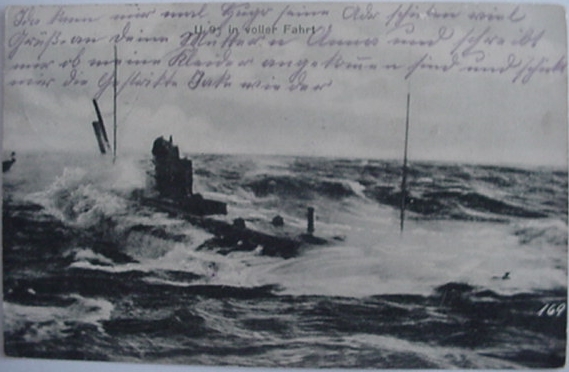 kann mir mal Hugo seine Adr schicken viel
Grüße an deine Mutter u Anna und schreibt
U 93 in voller Fahrt
mir ob meine Kleider angekommen sind und schickt
mir die Gestrikte Jak wieder
169